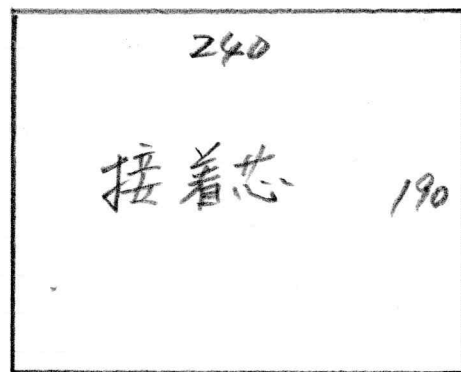 240
接着芯 190